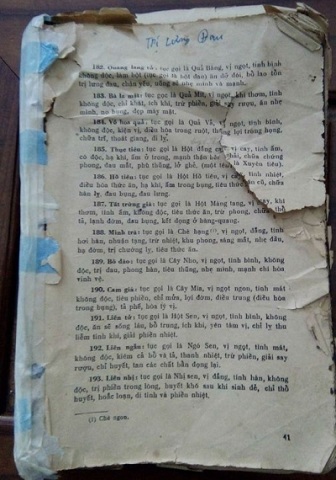 Trị Lưng Đau
182. Quang lang tử: tục gọi là Quả Báng, vị ngọt, tính bình
không độc, làm bột (tục gọi là bột báng) ăn đỡ đói, bổ lao tổn
trị lưng đau, chân yếu, uống sẽ nhẹ mình và mạnh.
183. Ba la mật: tục gọi là Quả Mít, vị ngọt, khí thơm, tính
không độc, chỉ khát, ích khí, trừ phiền, giải say rượu, ăn nhẹ
mình, no bụng, đẹp mày mặt.
184. Vô hoa quả: tục gọi là Quả Vả, vị ngọt, tính
không độc, kiện vị, điều hòa trung ruột, thông lợi trừng hung,
chữa trĩ, thoát giang, đi lỵ.
185. Thục tiêu: tục gọi là Hột vị cay, tính ấm,
có độc, hạ khí, ấm ổ trung, mạnh chữa chứng
phong, đau mắt, phù thũng, lở ghẻ, (một tên là Xuyên tiêu).
186. Hồ tiêu: tục gọi là Hột Hồ tiêu, vị cay, tính nhiệt,
điều hòa thức ăn, hạ khí, ấm trong bụng, tiêu thức ăn cũ, chữa
hàn lỵ, đau bụng, đau lưng.
187. Tất trừng già: tục gọi là Hột Màng tang, vị cay, khí
thơm, tính ấm, không độc, tiêu thức ăn, trừ phong, chữa thổ
tả, lạnh đờm, đau bụng, kết đọng ở bàng-quang.
188. Minh trà: tục gọi là Chè bạng(¹), vị ngọt, đắng, tính
hơi hàn, nhuận tạng, trừ nhiệt, khu phong, sáng mắt, nhẹ đầu,
hạ đờm, trị chướng lỵ, tiêu thức ăn.
189. Bồ đào: tục gọi là Cây Nho, vị ngọt, tính bình, không
độc, trị đau, phong hàn, tiêu thũng, nhẹ mình, mạnh chí hòa
vinh vệ.
190. Cam giá: tục gọi là Cây Mía, vị ngọt ngon, tính mát
không độc, tiêu phiền, chỉ mửa, lợi đờm, điều trung (điều hòa
trung hung), tả phế, hòa tỳ vị.
191. Liên tử: tục gọi là Hột Sen, vị ngọt, tính bình, không
độc, ăn sẽ sống lâu, bổ trung, ích khí, yên tâm vị, chỉ lỵ thu
liễm tinh khí, giải phiền nhiệt.
192. Liên ngẫu: tục gọi là Ngó Sen, vị ngọt, tính mát,
không độc, kiêm cả bổ và tả, thanh nhiệt, trừ phiền, giải say
rượu, chỉ huyết, tan các chất hãn đọng lại.
193. Liên nhị: tục gọi là Nhị sen, vị đắng, tính hàn, không
độc, trị phiền trung lòng, huyết khô sau khi sinh đẻ, chỉ thổ
huyết, hoắc loạn, di tinh và phiền nhiệt.
(¹) Chè ngon.
41